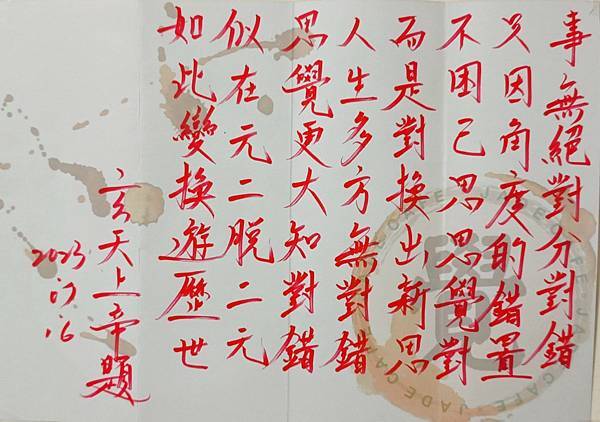 事無絕對分對錯
只因角度的錯置
不困己思思覺對
而是對換出新思
人生多方無對錯
思覺更大知對錯
似在元二脫二元
如此變換遊歷世
玄天上帝題
2023
07.16
覺
JADE CAFE JADE CAFE